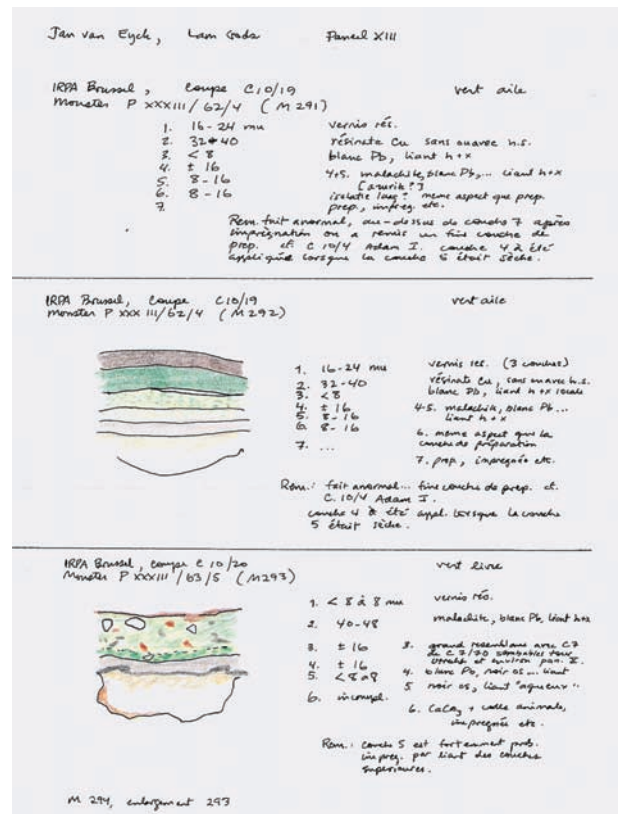 Jan van Eyck, Lam Gods Paneel XIII
IRPA Brussel, coupe C10/19 vert aile
Monster P XXXIII/62/4 (M291)
1. 16-24 mu vernis rés.
2. 32-40 résinate Cu sans ou avec h.s.
3. < 8 blanc Pb, liant h+x
4. ± 16 4+5. malachite, blanc Pb,... liant h+x
5. 8-16 [azurite?]
6. 8-16 isolatie laag? meme aspect que prep.
7. prep., impreg. etc.
Rem. fait anormal, au-dessus de couche 7 après
imprégnation on a remis un fine couche de
prep. cf. C 10/4 Adam I. couche 4 à été
appliquée lorsque la couche 5 était sèche.
IRPA Brussel, coupe C10/19 vert aile
Monster P XXXIII/62/4 (M292)
1. 16-24 mu vernis res. (3 couches)
2. 32-40 résinate Cu, sans ou avec h.s.
3. < 8 blanc Pb, liant h+x
4. ± 16 4-5. malachite, blanc Pb...
5. 8-16 liant h+x
6. 8-16 6. meme aspect que la
couche de préparation
7. ... 7. prep, impregnée etc.
Rem.: fait anormal... fine couche de prep. cf.
C. 10/4 Adam I.
couche 4 à été appl. lorsque la couche
5 était sèche.
IRPA Brussel, coupe C 10/20 vert livre
Monster P XXXIII/63/5 (M293)
1. < 8 à 8 mu vernis rés.
2. 40-48 malachite, blanc Pb, liant h+x
3. ± 16 3. grand resemblance avec C7
de C7/70 tour
Utrecht et environ pan. I.
4. ± 16 4. blanc Pb, noir os... liant
5. < 8 à 8 5 noir os, liant "aqueux".
6. incompl. 6. CaCO3 + colle animale,
impregnée etc.
Rem.: couche 5 est fortement prob.
impreg. par liant des couches
superieures.
M 294, enlargement 293